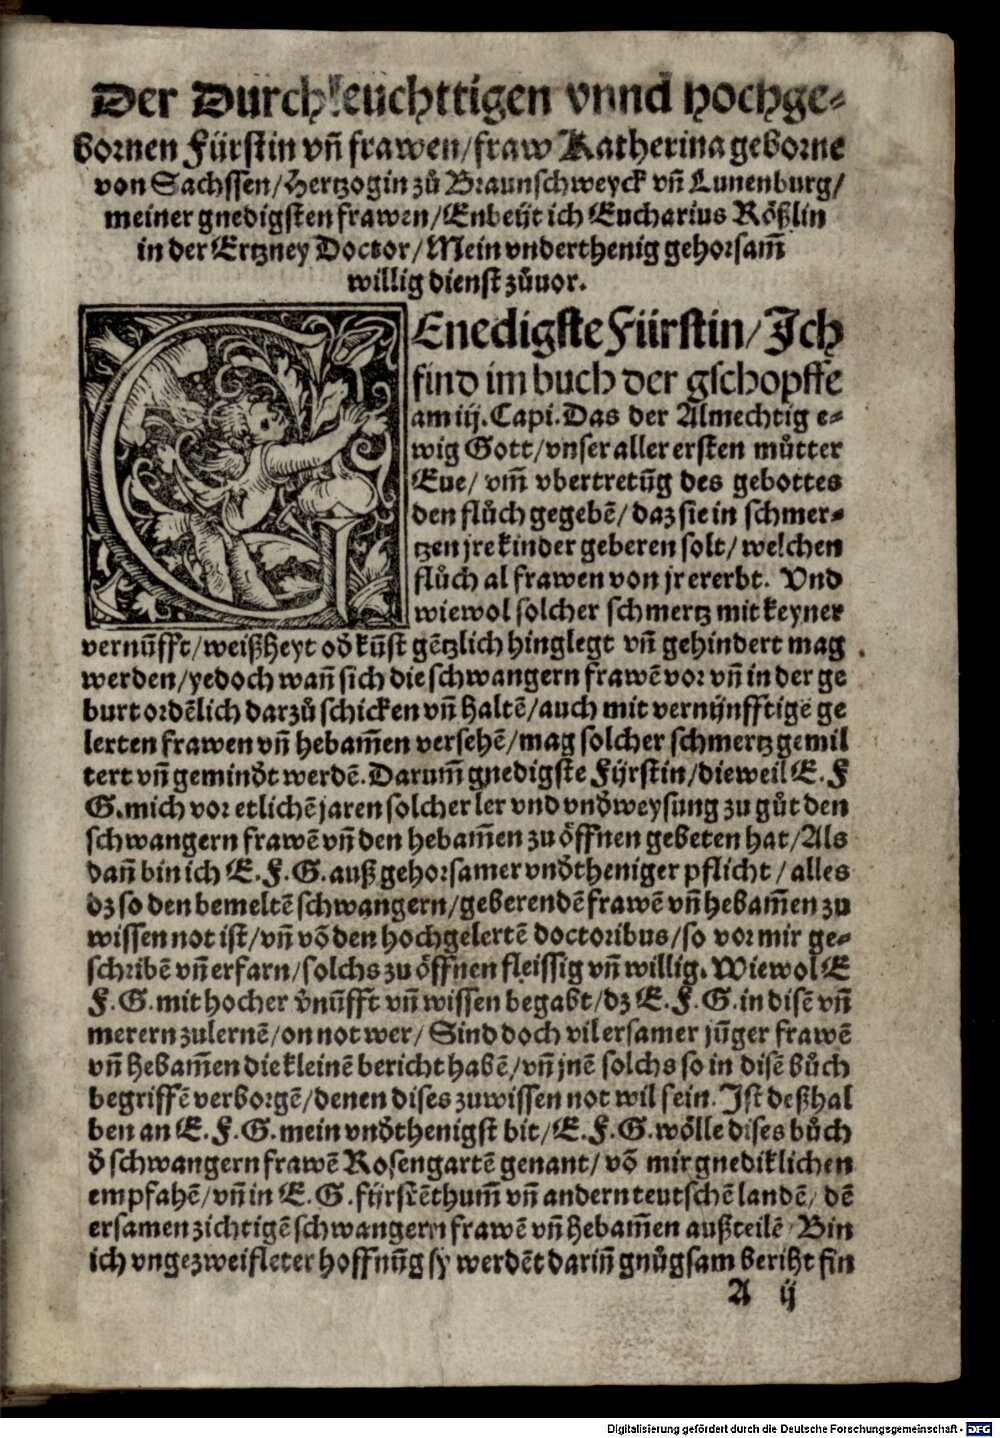 Der Durchleuchttigen vnnd hochge-
bornen Fürstin vn̄ frawen/fraw Katherina geborne
von Sachssen/Hertzogin zů Braunschweyck vn̄ Lunenburg/
meiner gnedigsten frawen/Enbeijt ich Eucharius Rößlin
in der Ertzney Doctor/Mein vnderthenig gehorsam̄
willig dienst zůuor.
GEnedigste Fürstin/Ich
find im buch der gschopffe
am iij. Capi. Das der Almechtig e-
wig Gott/vnser aller ersten můtter
Eue/ vm̄ vbertretūg des gebottes
den flůch gegebē/daz sie in schmer-
tzen jre kinder geberen solt/welchen
flůch al frawen von jr ererbt. Vnd
wiewol solcher schmertz mit keyner
vernūfft/weißheyt oð kūst gētzlich hinglegt vn̄ gehindert mag
werden/yedoch wan̄ sich die schwangern frawē vor vn̄ in der ge
burt ordēlich darzů schicken vn̄ haltē/auch mit vernijnfftigē ge
lerten frawen vn̄ hebam̄en versehē/mag solcher schmertz gemil
tert vn̄ geminðt werdē. Darum̄ gnedigste Fijrstin/dieweil E. F
G. mich vor etlichē jaren solcher ler vnd vnðweysung zu gůt den
schwangern frawē vn̄ den hebam̄en zu öffnen gebeten hat/Als
dan̄ bin ich E. F. G. auß gehorsamer vnðtheniger pflicht/alles
dz so den bemeltē schwangern/geberendē frawē vn̄ hebam̄en zu
wissen not ist/vn̄ vō den hochgelertē doctoribus/so vor mir ge-
schribē vn̄ erfarn/solchs zu öffnen fleissig vn̄ willig. Wiewol E
F. G. mit hocher v̄nūfft vn̄ wissen begabt/dz E. F. G. in disē vn̄
merern zulernē/on not wer/ Sind doch vil ersamer jūger frawē
vn̄ hebam̄en die kleinē bericht habē/vn̄ jnē solchs so in disē bůch
begriffē verborgē/denen dises zuwissen not wil sein. Ist deßhal
ben an E. F. G. mein vnðthenigst bit/E. F. G. wölle dises bůch
ð schwangern frawē Rosengartē genant/vō mir gnediklichen
empfahē/vn̄ in E. G. fijrstēthum̄ vn̄ andern teutschē landē/dē
ersamen zichtigē schwangern frawē vn̄ hebam̄en außteilē/Bin
ich vngezweifleter hoffnūg sy werdēt darin̄ gnůgsam beriht fin
A ij
Digitalisierung gefördert durch die Deutsche Forschungsgemeinschaft - DFG